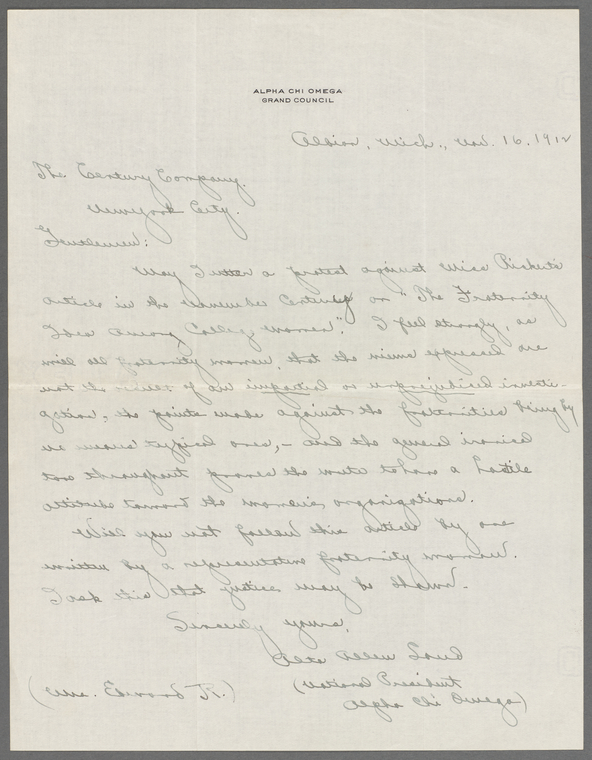 ALPHA CHI OMEGA
GRAND COUNCIL
Albion, Mich., Nov. 16, 1912
The Century Company,
New York City.
Gentlemen:
May I utter a protest against Miss Rickert's
article in the November Century on "The Fraternity
Idea Among College Women". I feel strongly, as
will all fraternity women, that the views expressed are
not the views of an impartial or unprejudiced investi-
gation, - the points made against the fraternities being by
no means typical ones, - and the general ironical
tone throughout proves the writer to have a hostile
attitude toward the women's organizations.
Will you not follow this article by one
written by a representative fraternity woman.
I ask this that justice may be shown.
Sincerely yours,
Alta Allen Loud
(Mrs. Edward J. R.) (National President
Alpha Chi Omega)